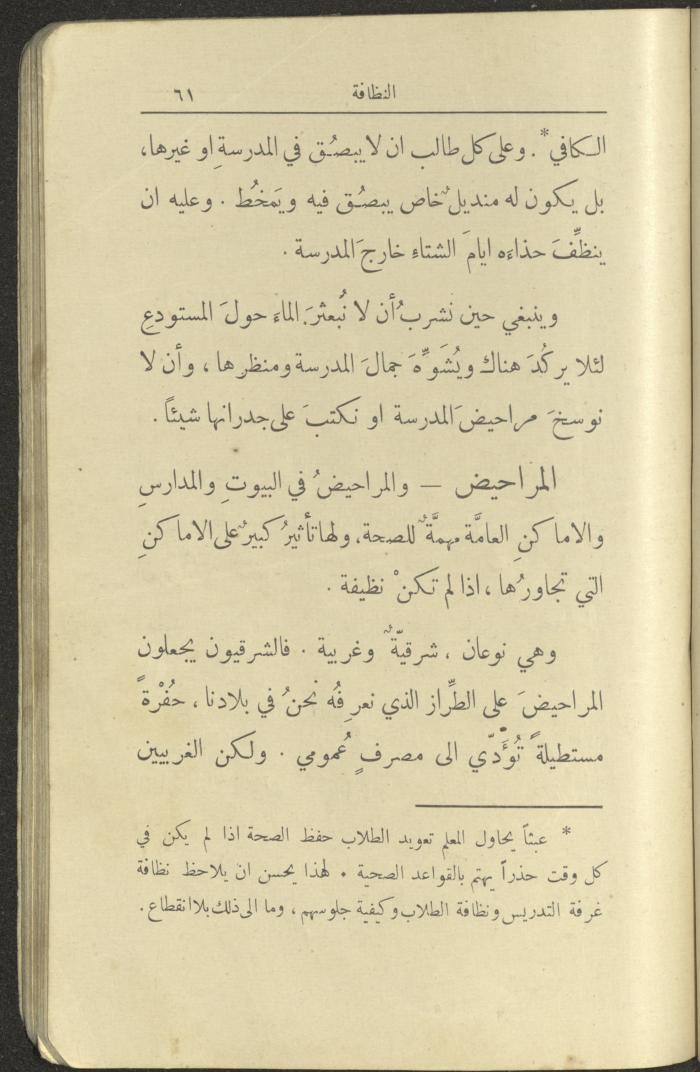 النظافة ٦١
الكافي* . وعلى كل طالب ان لا يبصُق في المدرسةِ او غيرها،
بل يكون له منديلٌ خاص يبصُق فيه ويَمخُط . وعليه ان
ينظِّفَ حذاءَه ايامَ الشتاءِ خارجَ المدرسة .
وينبغي حين نشربُ أن لا نُبعثرَ الماءَ حولَ المستودعِ
لئلا يركُدَ هناك ويُشَوِّهَ جمالَ المدرسة ومنظرِها ، وأن لا
نوسخَ مراحيضَ المدرسة او نكتبَ على جدرانها شيئاً .
المراحيض — والمراحيضُ في البيوتِ والمدارسِ
والاماكنِ العامَّة مهمَّةٌ للصحة، ولها تأثيرٌ كبيرٌ على الاماكنِ
التي تجاورُها ، اذا لم تكنْ نظيفة .
وهي نوعان ، شرقيّةٌ وغربية . فالشرقيون يجعلون
المراحيضَ على الطِّراز الذي نعرِفُه نحنُ في بلادنا ، حُفْرةً
مستطيلةً تُؤَدّي الى مصرفٍ عُمومي . ولكن الغربيين
* عبثاً يحاول المعلم تعويد الطلاب حفظ الصحة اذا لم يكن في
كل وقت حذراً يهتم بالقواعد الصحية . لهذا يحسن ان يلاحظ نظافة
غرفة التدريس ونظافة الطلاب وكيفية جلوسهم ، وما الى ذلك بلا انقطاع .